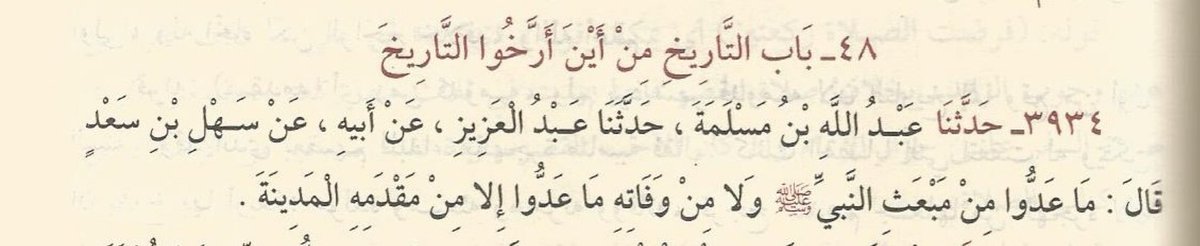 ٤٨ـ بَاب التَّارِيخِ مِنْ أَيْنَ أَرَّخُوا التَّارِيخَ
٣٩٣٤ـ حَدَّثَنَا عَبْدُ اللَّهِ بْنُ مَسْلَمَةَ ، حَدَّثَنَا عَبْدُ الْعَزِيزِ ، عَنْ أَبِيهِ ، عَنْ سَهْلِ بْنِ سَعْدٍ
قَالَ : مَا عَدُّوا مِنْ مَبْعَثِ النَّبِيِّ ﷺ وَلَا مِنْ وَفَاتِهِ مَا عَدُّوا إِلا مِنْ مَقْدَمِهِ الْمَدِينَةَ .